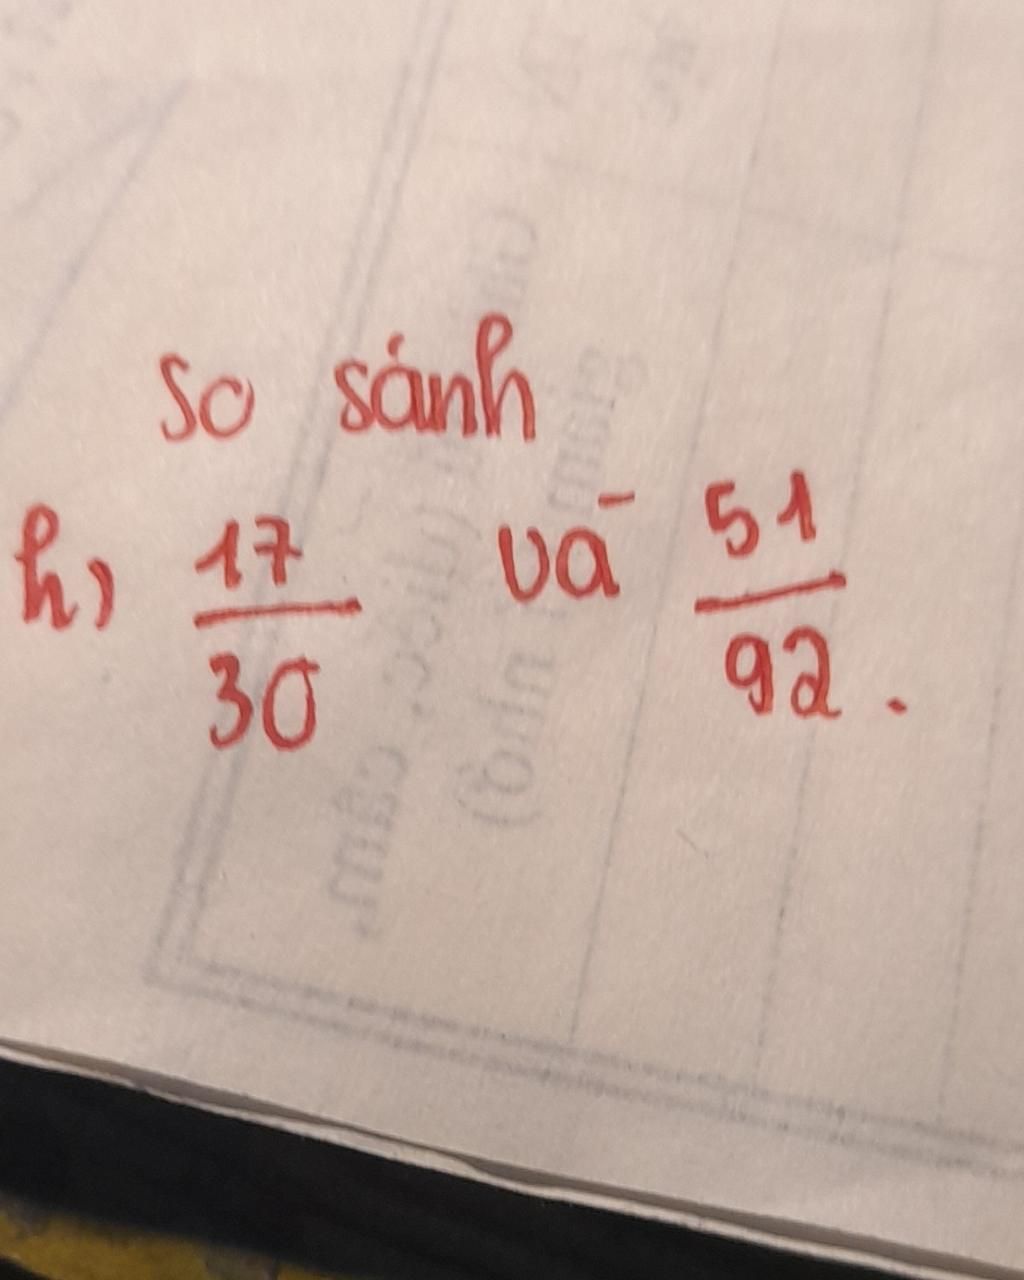 So sánh
h) 17/30 và 51/92.